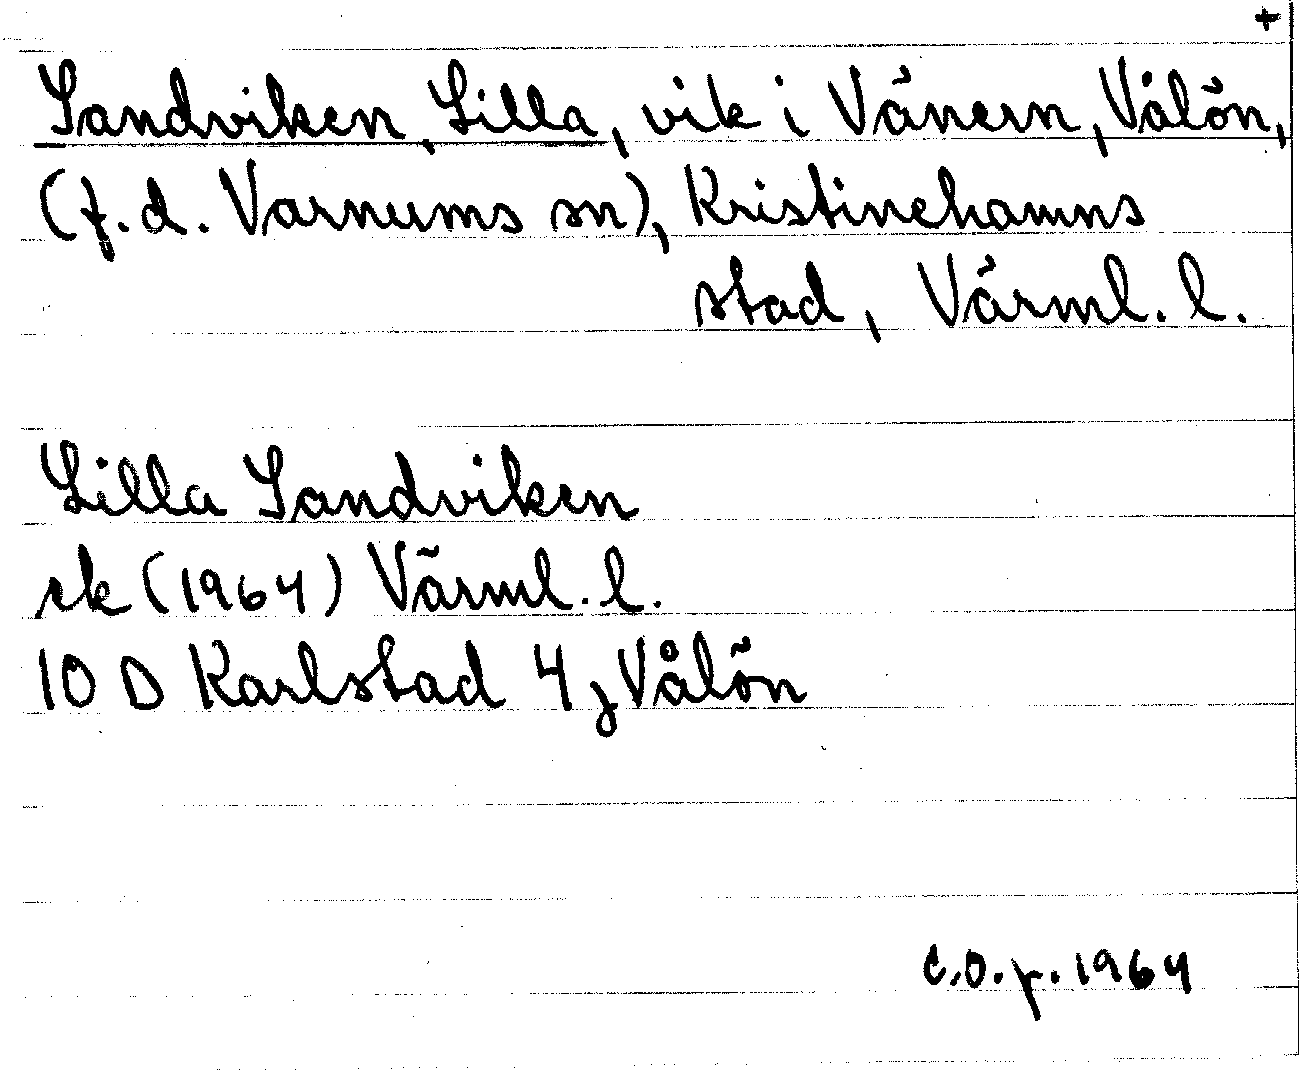 +
Sandviken, Lilla, vik i Vänern, Vålön,
(f.d. Varnums sn), Kristinehamns
stad, Värml. l.
Lilla Sandviken
rk (1964) Värml. l.
10 D Karlstad 4 j Vålön
C.O.p. 1964